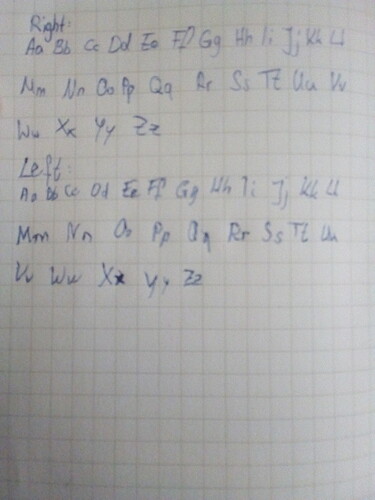 Right:
Aa Bb Cc Dd Ee Ff Gg Hh Ii Jj Kk Ll
Mm Nn Oo Pp Qq Rr Ss Tt Uu Vv
Ww Xx Yy Zz
Left:
Aa Bb Cc Dd Ee Ff Gg Hh Ii Jj Kk Ll
Mm Nn Oo Pp Qq Rr Ss Tt Uu
Vv Ww Xx Yy Zz